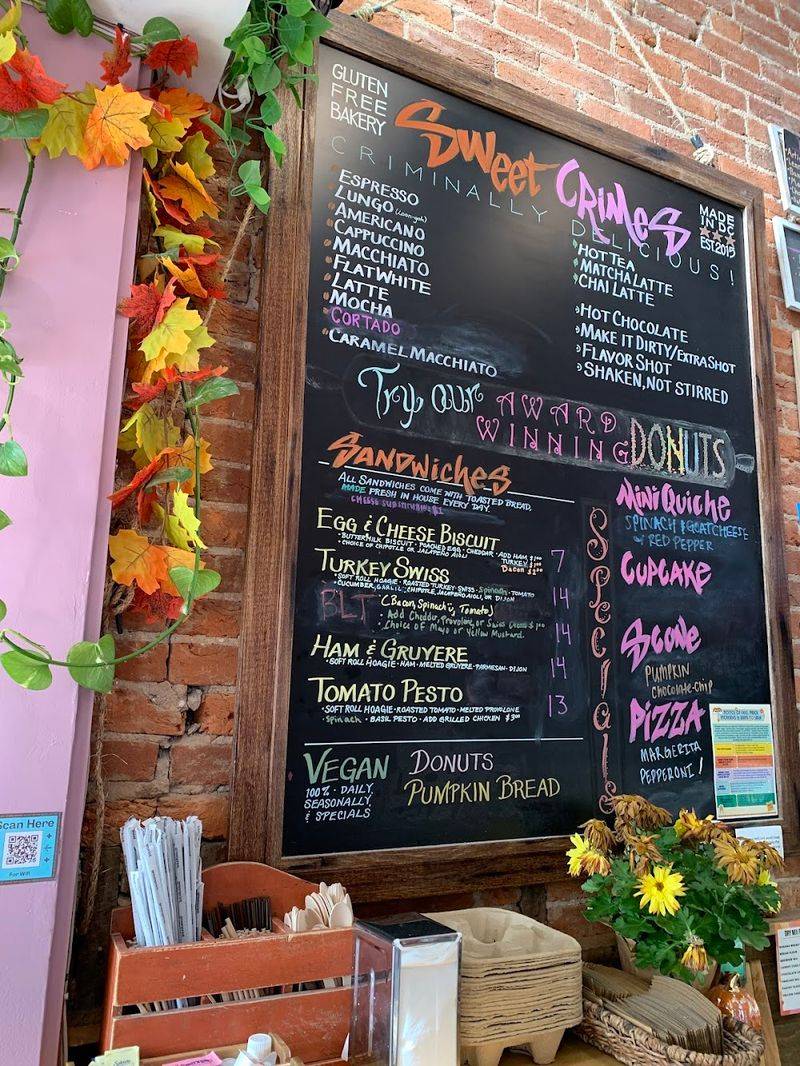 GLUTEN
FREE
BAKERY
Sweet CRiMeS
CRIMINALLY DELICIOUS!
MADE
IN DC
EST 2015
ESPRESSO
LUNGO (Loon-goh)
AMERICANO
CAPPUCCINO
MACCHIATO
FLAT WHITE
LATTE
MOCHA
CORTADO
CARAMEL MACCHIATO
HOT TEA
MATCHA LATTE
CHAI LATTE
HOT CHOCOLATE
MAKE IT DIRTY/EXTRA SHOT
FLAVOR SHOT
SHAKEN, NOT STIRRED
Try our AWARD WINNING DONUTS
SANDWICHES
ALL SANDWICHES COME WITH TOASTED BREAD,
MADE FRESH IN HOUSE EVERY DAY.
CHEESE SUBSTITUTE $1
EGG & CHEESE BISCUIT 7
• BUTTERMILK BISCUIT • POACHED EGG • CHEDDAR • ADD HAM $1.00
• CHOICE OF CHIPOTLE OR JALAPEÑO AIOLI TURKEY $1.00
Bacon $2.00
TURKEY SWISS 14
• SOFT ROLL HOAGIE • ROASTED TURKEY • SWISS • Spinach • TOMATO
• CUCUMBER, GARLIC, CHIPOTLE, JALAPENO AIOLI, OR DIJON
BLT (Bacon, Spinach, Tomato) 14
• Add Cheddar, Provolone, or Swiss Cheese $1.00
• Choice of Mayo or Yellow Mustard.
HAM & GRUYERE 14
• SOFT ROLL HOAGIE • HAM • MELTED GRUYERE • PARMESAN • DIJON
TOMATO PESTO 13
• SOFT ROLL HOAGIE • ROASTED TOMATO • MELTED PROVOLONE
• Spinach • BASIL PESTO • ADD GRILLED CHICKEN $3.00
VEGAN
100% • DAILY,
SEASONALLY,
& SPECIALS
DONUTS
PUMPKIN BREAD
Specials
MiNi QuicHe
SPINACH & GOAT CHEESE
w/ RED PEPPER
CUPCAKE
SCONE
PUMPKIN
Chocolate-Chip
PiZZA
MARGERITA
PEPPERONI!
Scan Here
For Wifi